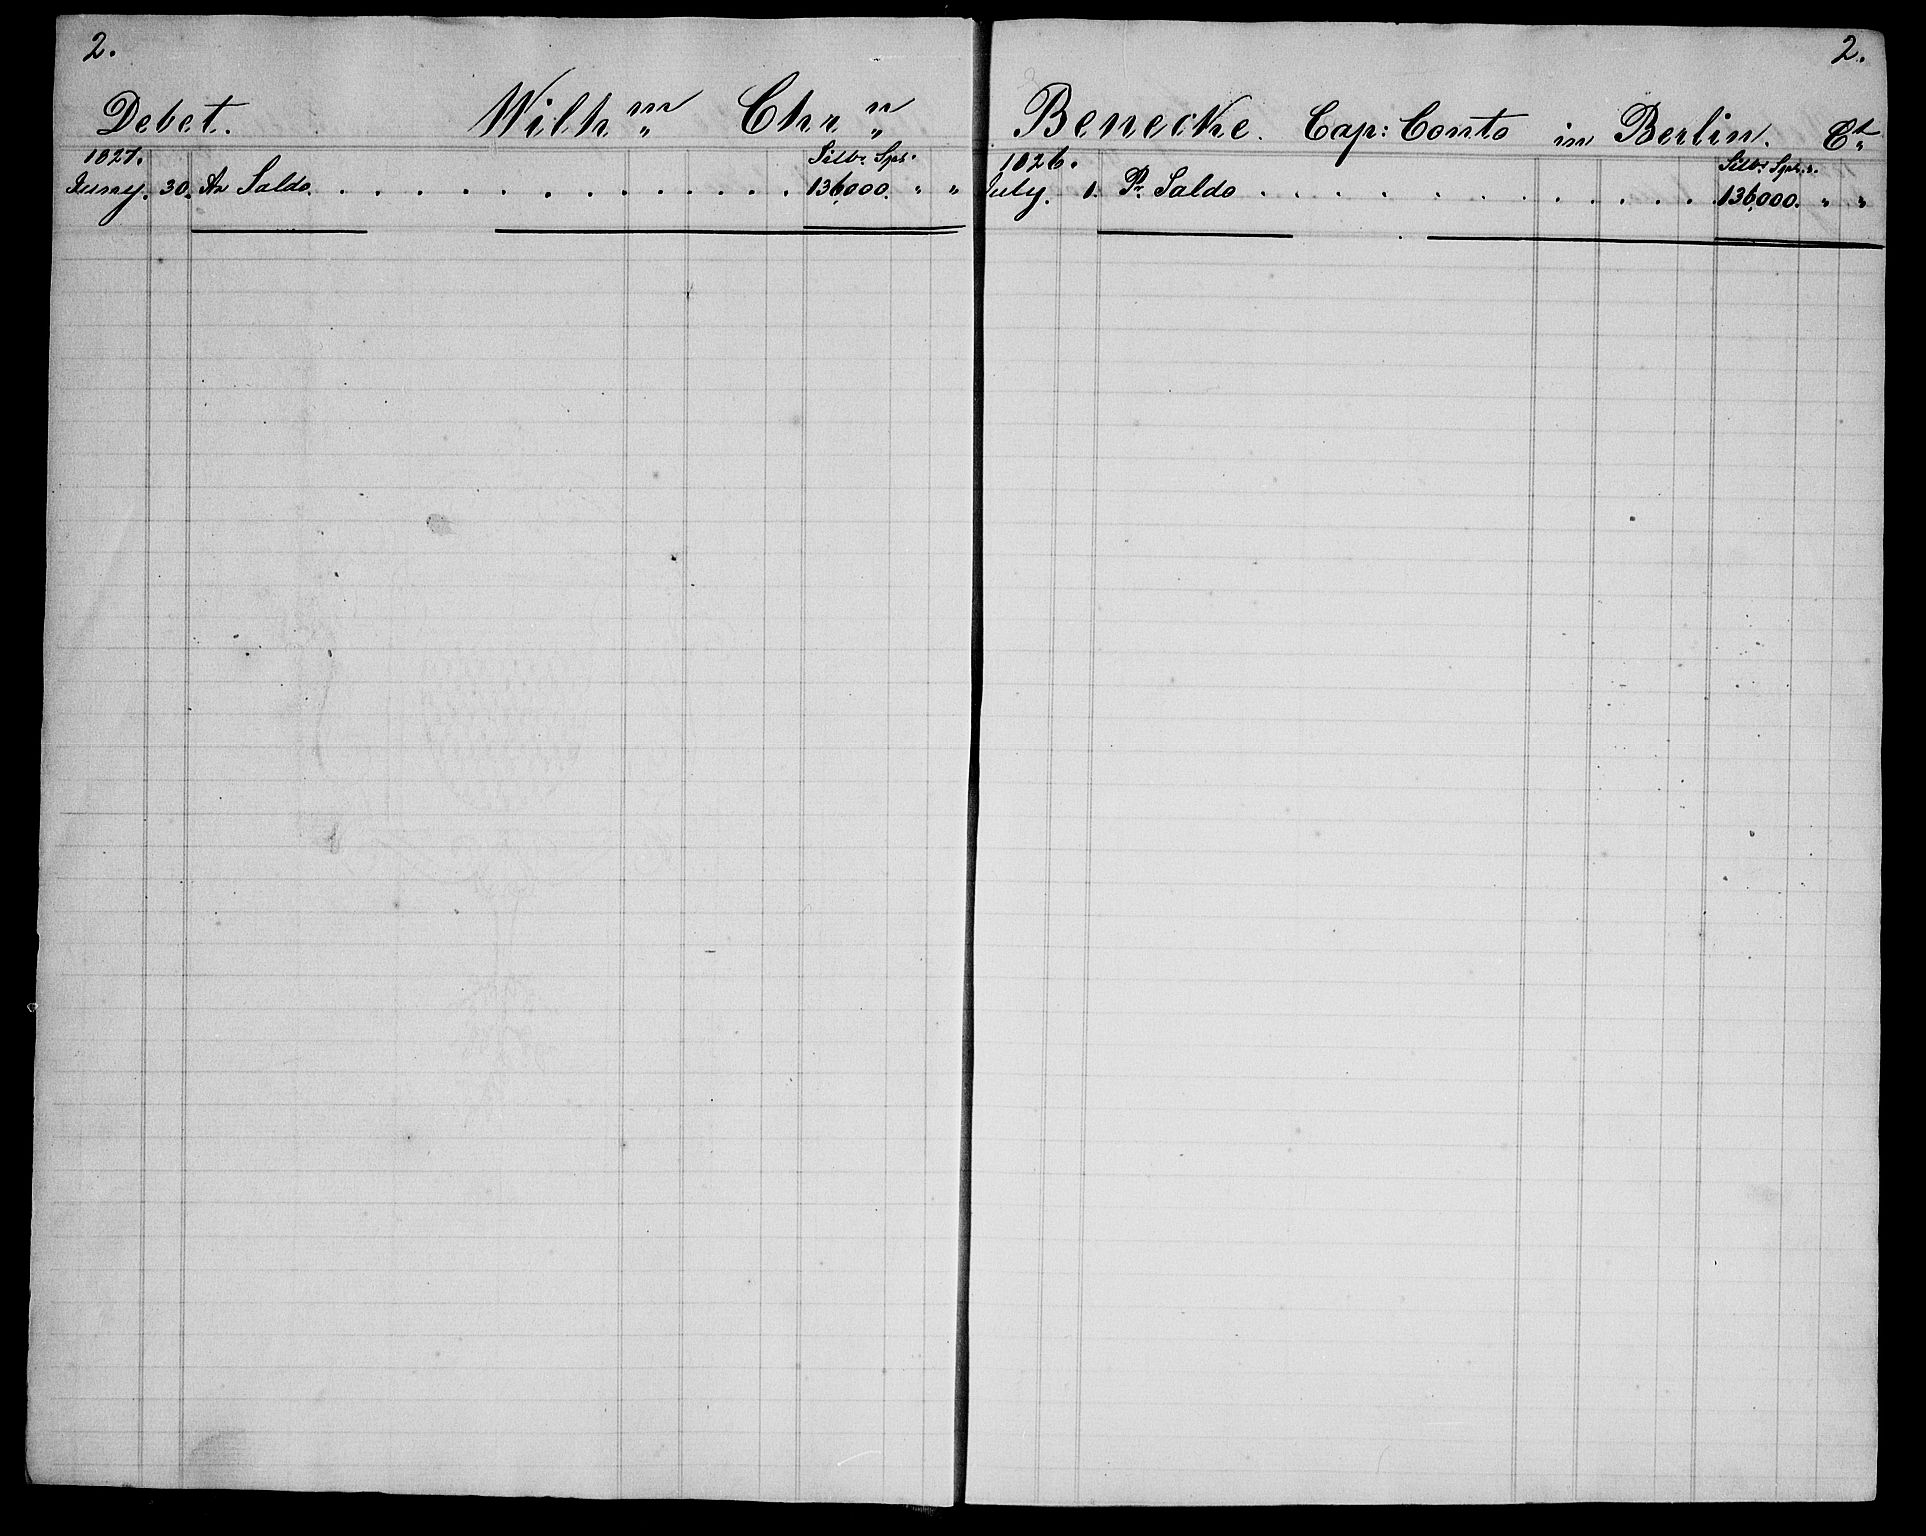 2.
Debet. Wilh m„ Chr n„
1827. Silbr Spls.
Juny. 30. An Saldo. . . . . . . . . . . . 136,000. „ „
2.
Benecke. Cap: Conto in Berlin. Ct„
1826. Silbr Spls.
July. 1. Pr. Saldo . . . . . . . . . . . . 136,000. „ „